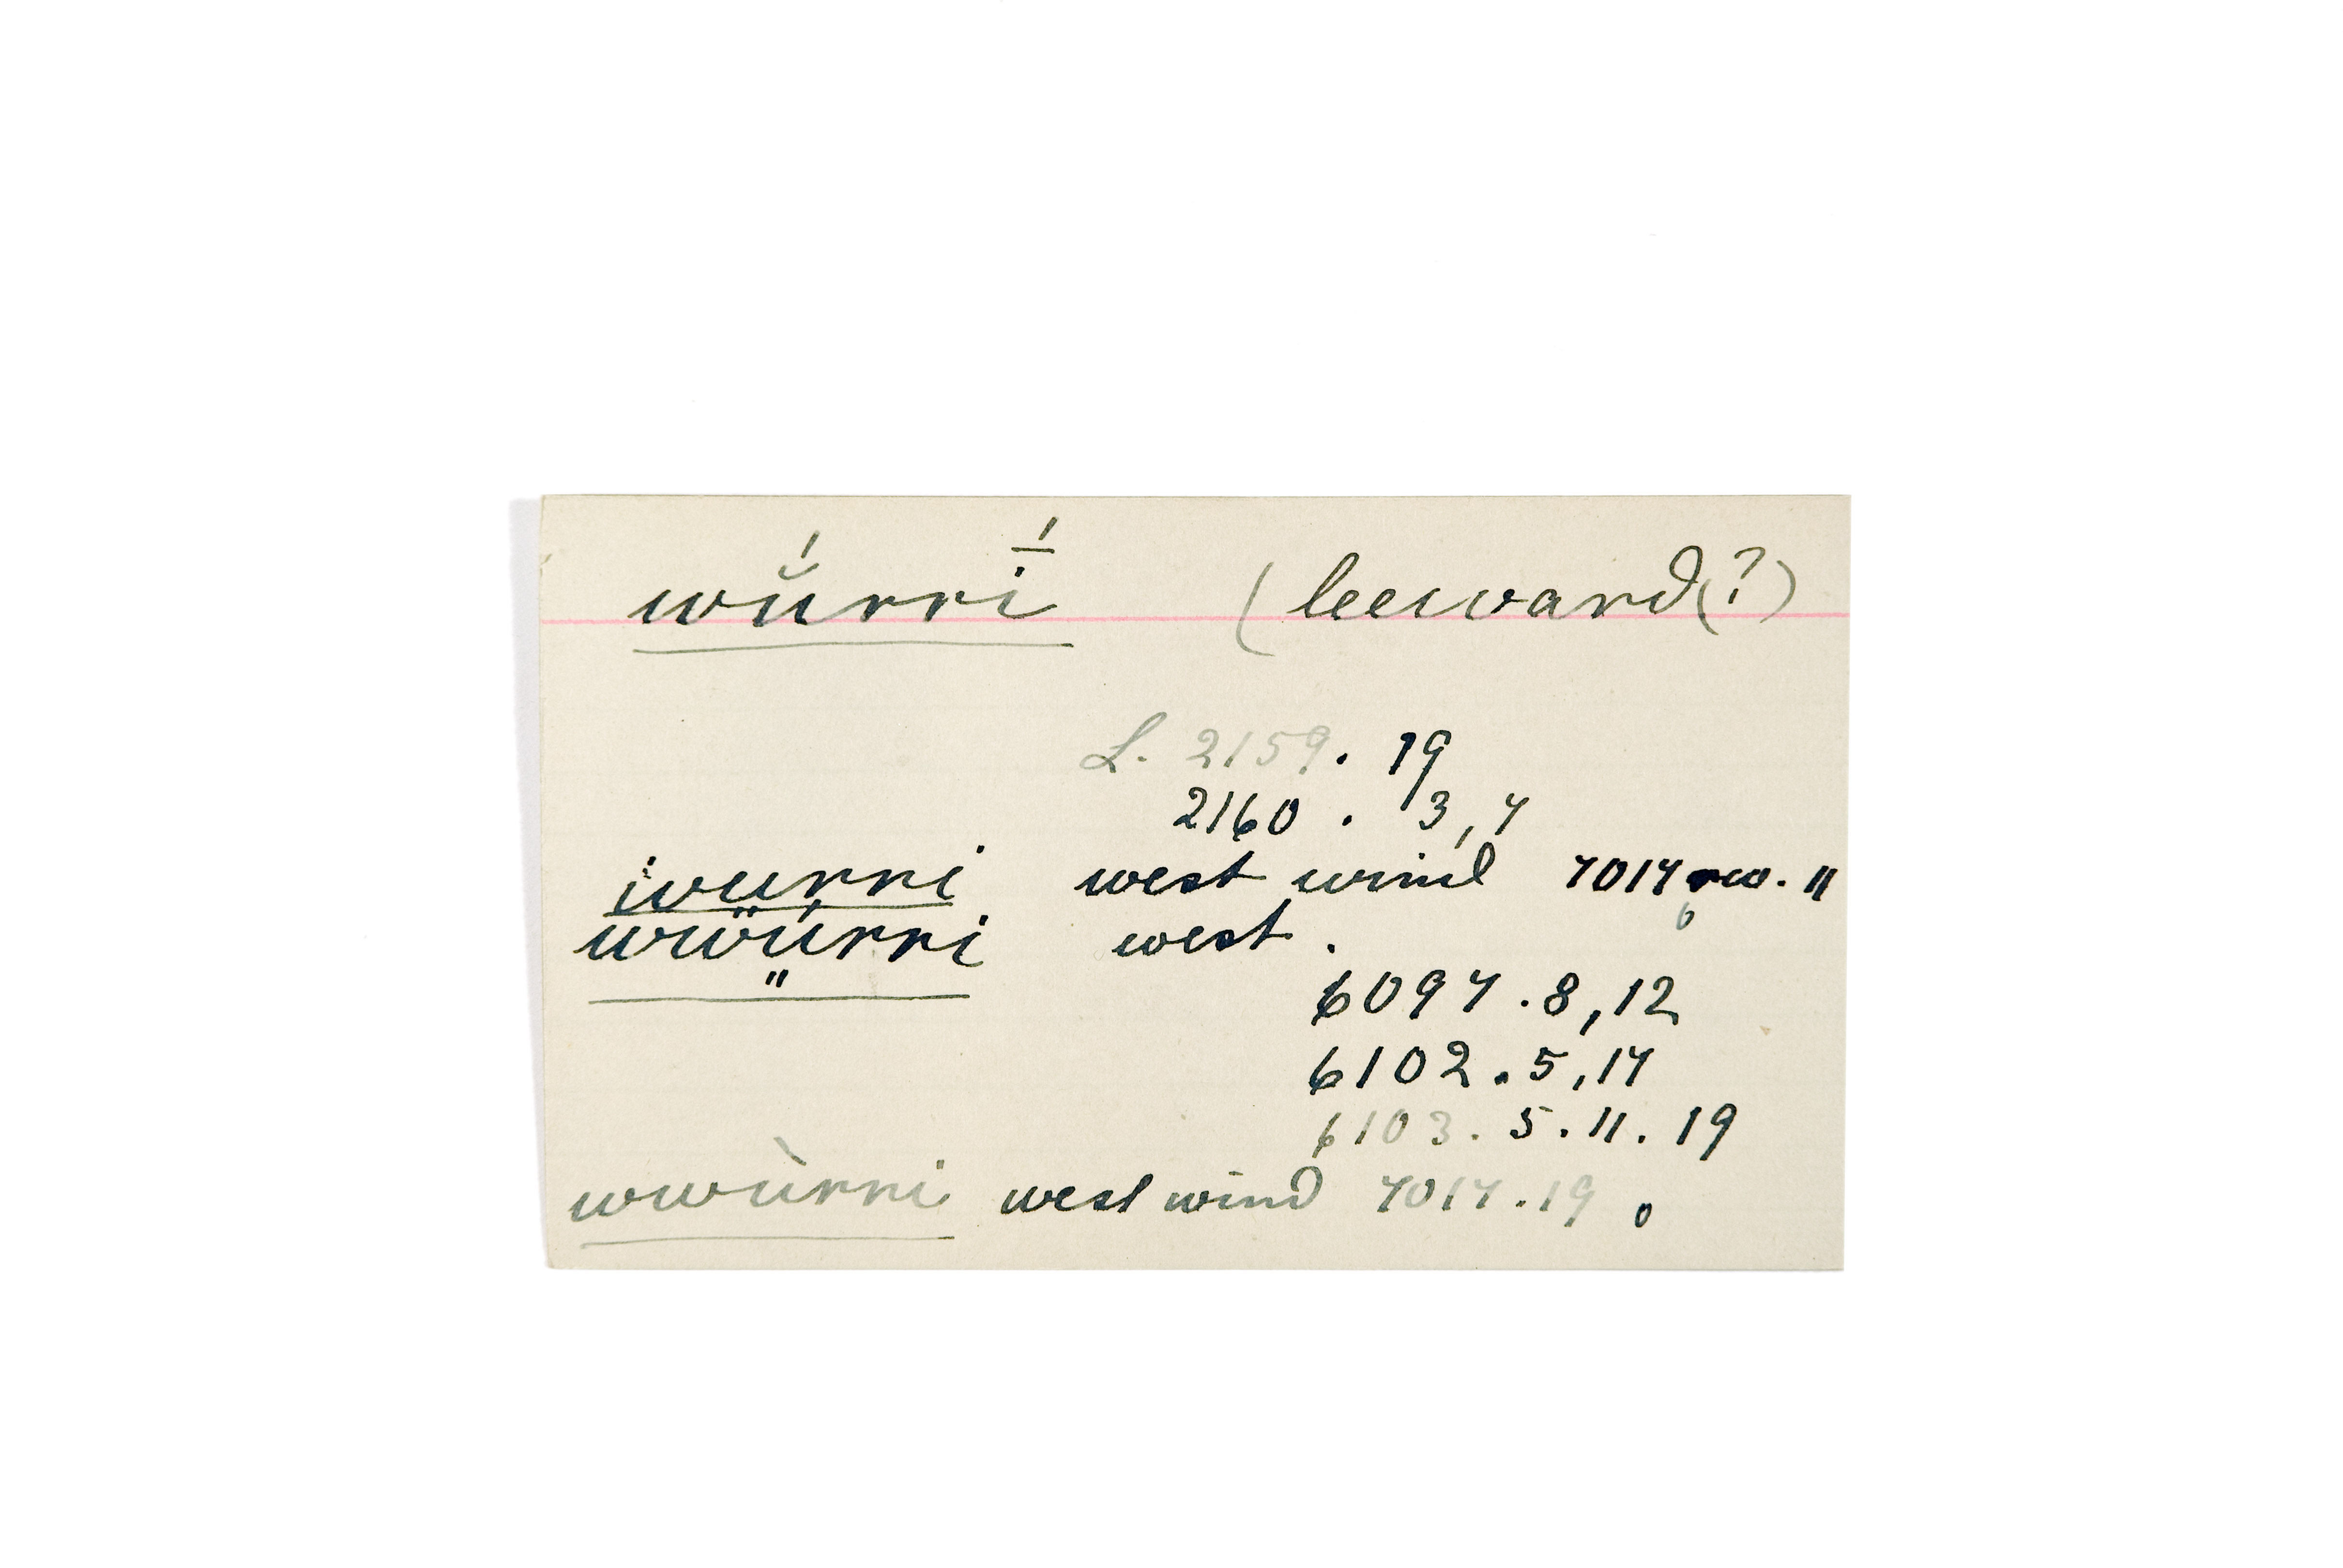 wŭ́rrī́ (leeward(?)
L. 2159. 19
2160. 3, 4
iwurri west wind 7014 rev. 11
wẅúrri west.
6094. 8, 12
6102. 5, 14
6103. 5. 11. 19
wwùrri west wind 7014. 19